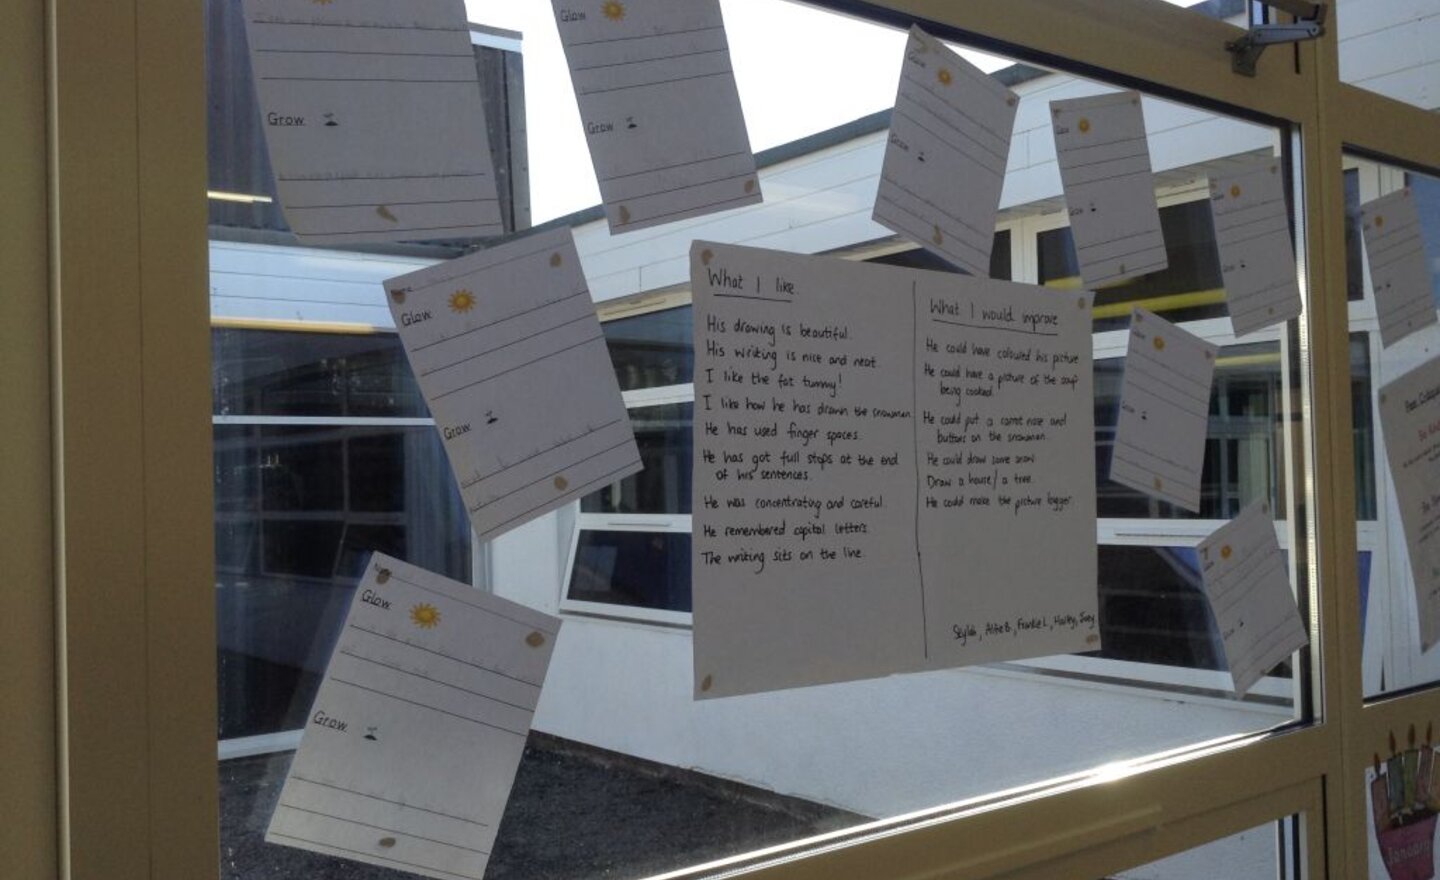 Grow
Glow
Grow
Glow
Grow
Glow
Grow
Glow
Grow
What I like
His drawing is beautiful.
His writing is nice and neat.
I like the fat tummy!
I like how he has drawn the snowman.
He has used finger spaces.
He has got full stops at the end
of his sentences.
He was concentrating and careful.
He remembered capital letters.
The writing sits on the line.
What I would improve
He could have coloured his picture
He could have a picture of the soup
being cooked.
He could put a carrot nose and
buttons on the snowman.
He could draw some snow
Draw a house / a tree.
He could make the picture bigger.
Alfie B, Frankie L, Harley, Joey
January